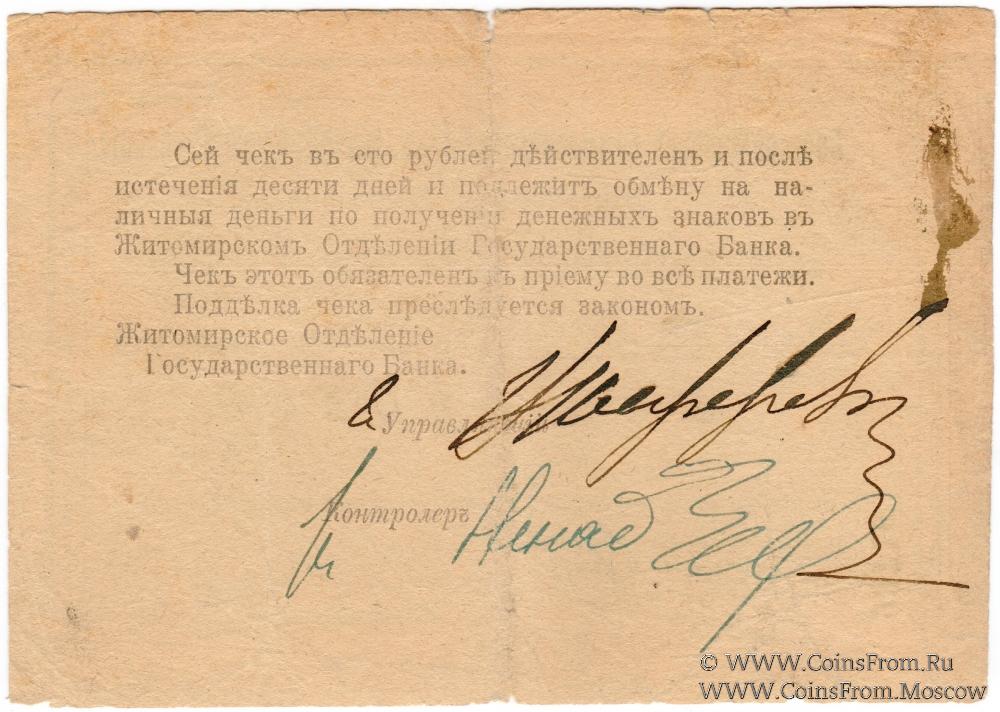 Сей чекъ въ сто рублей дѣйствителенъ и послѣ
истеченія десяти дней и подлежитъ обмѣну на на-
личныя деньги по полученіи денежныхъ знаковъ въ
Житомирскомъ Отдѣленіи Государственнаго Банка.
Чекъ этотъ обязателенъ къ пріему во всѣ платежи.
Поддѣлка чека преслѣдуется закономъ.
Житомирское Отдѣленіе
Государственнаго Банка.
Управляющій
Контролеръ
© WWW.CoinsFrom.Ru
WWW.CoinsFrom.Moscow